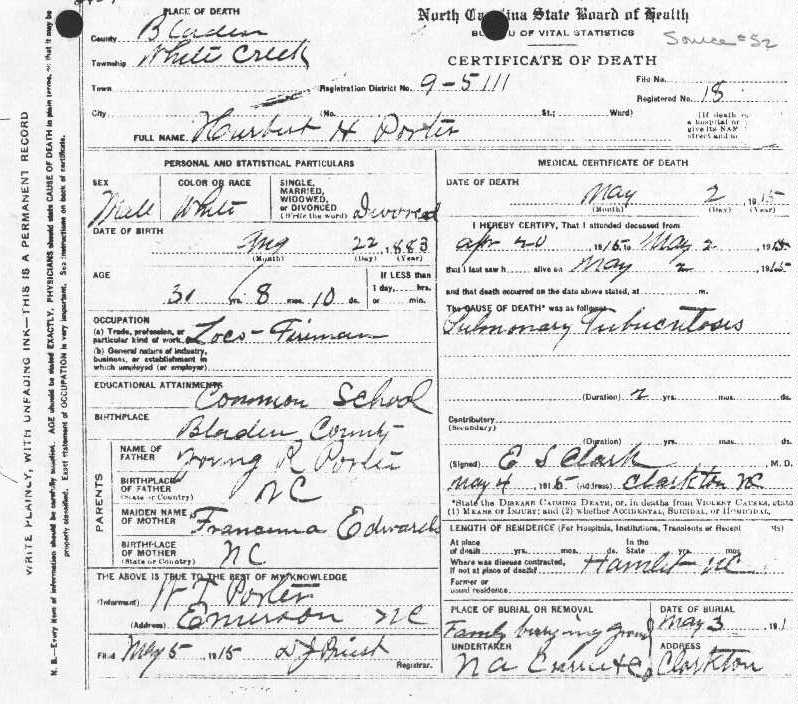 PLACE OF DEATH
County Bladen
Township White Creek
Town
City
North Carolina State Board of Health
BUREAU OF VITAL STATISTICS
Source #52
CERTIFICATE OF DEATH
Registration District No. 9-5111
File No.
Registered No. 18
(No. St.; Ward)
(If death
a hospital or
give its NAM
street and
FULL NAME Hurbert H Porter
PERSONAL AND STATISTICAL PARTICULARS
SEX Male
COLOR OR RACE White
SINGLE, MARRIED, WIDOWED, or DIVORCED (Write the word) Divorced
DATE OF BIRTH Aug 22, 1883
(Month) (Day) (Year)
AGE 31 yrs. 8 mos. 10 ds.
If LESS than 1 day, hrs. or min.
OCCUPATION
(a) Trade, profession, or particular kind of work Loco-Fireman
(b) General nature of industry, business, or establishment in which employed (or employer)
EDUCATIONAL ATTAINMENTS Common School
BIRTHPLACE Bladen County
PARENTS
NAME OF FATHER R Porter
BIRTHPLACE OF FATHER (State or Country) NC
MAIDEN NAME OF MOTHER Edwards
BIRTHPLACE OF MOTHER (State or Country) NC
THE ABOVE IS TRUE TO THE BEST OF MY KNOWLEDGE
(Informant) Porter
(Address) Emerson NC
Filed May 5, 1915 Priest
Registrar.
MEDICAL CERTIFICATE OF DEATH
DATE OF DEATH May 2, 1915
(Month) (Day) (Year)
I HEREBY CERTIFY, That I attended deceased from
Apr 20 1915 to May 2 1915
that I last saw h alive on May 2 1915
and that death occurred on the date above stated, at m.
The CAUSE OF DEATH* was as follows:
Pulmonary Tuberculosis
(Duration) 2 yrs. mos. ds.
Contributory
(Secondary)
(Duration) yrs. mos. ds.
(Signed) E S Clark M.D.
May 4, 1915 (Address) Clarkton NC
*State the DISEASE CAUSING DEATH, or, in deaths from VIOLENT CAUSES, state
(1) MEANS OF INJURY; and (2) whether ACCIDENTAL, SUICIDAL, or HOMICIDAL.
LENGTH OF RESIDENCE (For Hospitals, Institutions, Transients or Recent
At place of death yrs. mos. ds. In the State yrs. mos. ds.
Where was disease contracted, if not at place of death? Hamlet NC
Former or usual residence
PLACE OF BURIAL OR REMOVAL
Family burying ground
DATE OF BURIAL
May 3, 191
UNDERTAKER
ADDRESS
Clarkton
WRITE PLAINLY, WITH UNFADING INK—THIS IS A PERMANENT RECORD
N. B.—Every item of information should be carefully supplied. AGE should be stated EXACTLY. PHYSICIANS should state CAUSE OF DEATH in plain terms, so that it may be
properly classified. Exact statement of OCCUPATION is very important. See instructions on back of certificate.